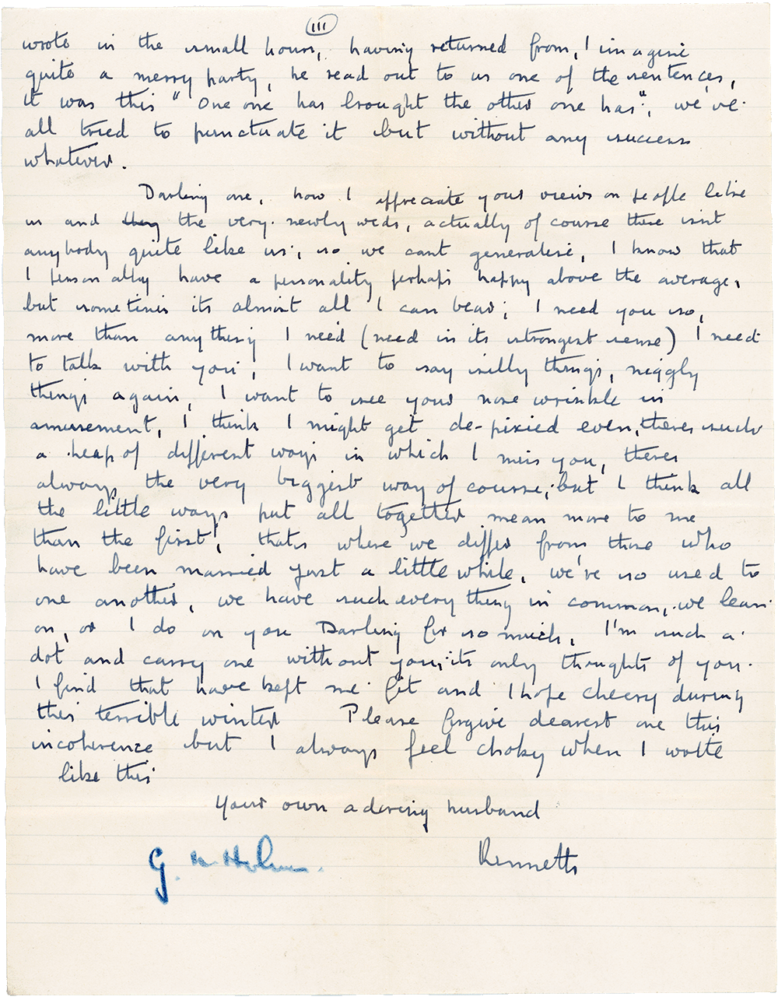 III
wrote in the small hours, having returned from, I imagine
quite a merry party, he read out to us one of the sentences,
it was this "One one has brought the other one has", we've
all tried to punctuate it but without any success
whatever.
Darling one, how I appreciate your views on people like
us and they the very newly weds, actually of course there isnt
anybody quite like us, so we cant generalise, I know that
I personally have a personality perhaps happy above the average,
but sometimes its almost all I can bear; I need you so,
more than anything I need (need in its strongest sense) I need
to talk with you, I want to say silly things, niggly
things again, I want to see your nose wrinkle in
amusement, I think I might get de-pixied even, theres such
a heap of different ways in which I miss you, theres
always the very biggest way of course, but I think all
the little ways put all together mean more to me
than the first, thats where we differ from those who
have been married just a little while, we're so used to
one another, we have such everything in common, we lean
on, or I do on you Darling for so much, I'm such a
dot and carry one without you, its only thoughts of you
I find that have kept me fit and I hope cheery during
this terrible winter Please forgive dearest one this
incoherence but I always feel choky when I write
like this
Your own adoring husband
Kenneth
G.